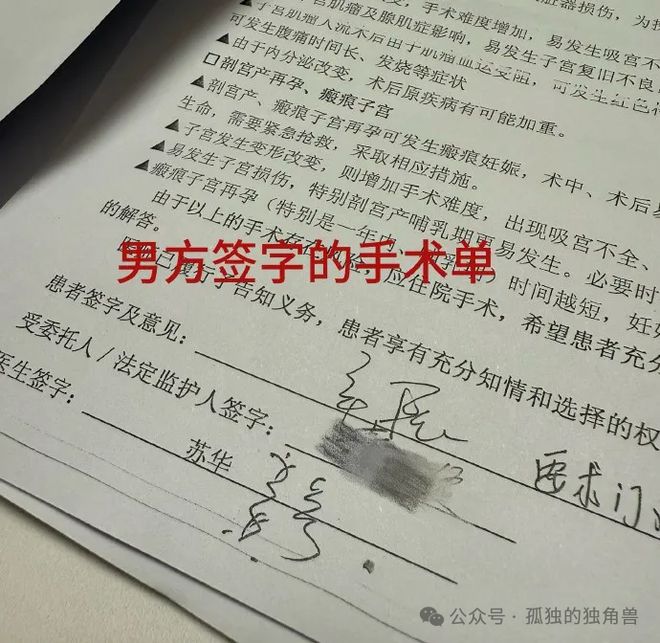 手术难度增加，易发生吸宫不
宫肌瘤及腺肌症影响，易发生子宫复旧不良
▲子宫肌瘤人流术后由于肌瘤血运受阻，可发生红色
可发生腹痛时间长、发烧等症状
▲由于内分泌改变，术后原疾病有可能加重。
□剖宫产再孕、瘢痕子宫
▲剖宫产、瘢痕子宫再孕可发生瘢痕妊娠，术中、术后
生命，需要紧急抢救，采取相应措施。
▲子宫发生变形改变，则增加手术难度，出现吸宫不全、
▲易发生子宫损伤，特别剖宫产哺乳期更易发生。必要时
▲瘢痕子宫再孕（特别是一年内 时间越短，妊
由于以上的手术 应住院手术，希望患者充分
的解答。
男方签字的手术单
已履行了告知义务，患者享有充分知情和选择的权
患者签字及意见：
要求门
受委托人/法定监护人签字：
医生签字：
苏华
公众号·孤独的独角兽